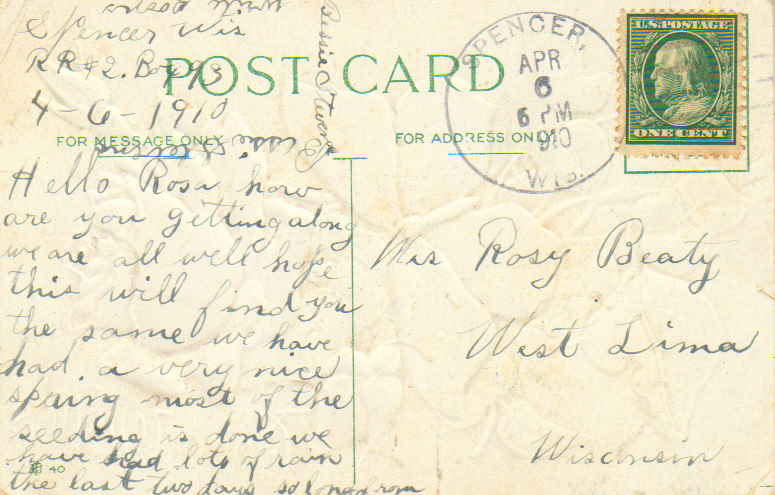 Spencer Wis
RR#2. Box 93
4-6-1910
POST CARD
FOR MESSAGE ONLY
FOR ADDRESS ONLY
Hello Rosa how
are you getting along
we are all well hope
this will find you
the same we have
had a very nice
spring most of the
seeding is done we
have had lots of rain
the last two days so long from
40
Bessie
SPENCER,
APR
6
6 PM
1910
WIS.
U.S. POSTAGE
ONE CENT
Mrs Rosy Beaty
West Lima
Wisconsin